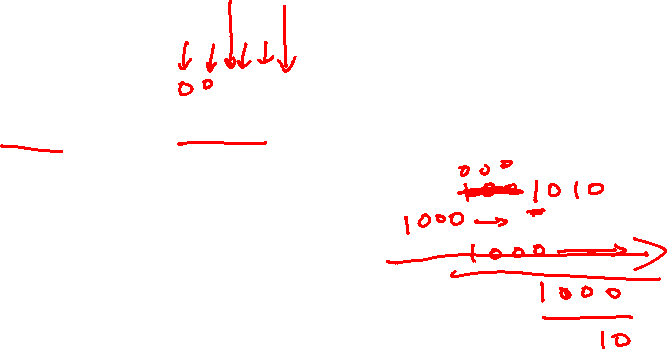 00
000
1001010
1000
1000
1000
10